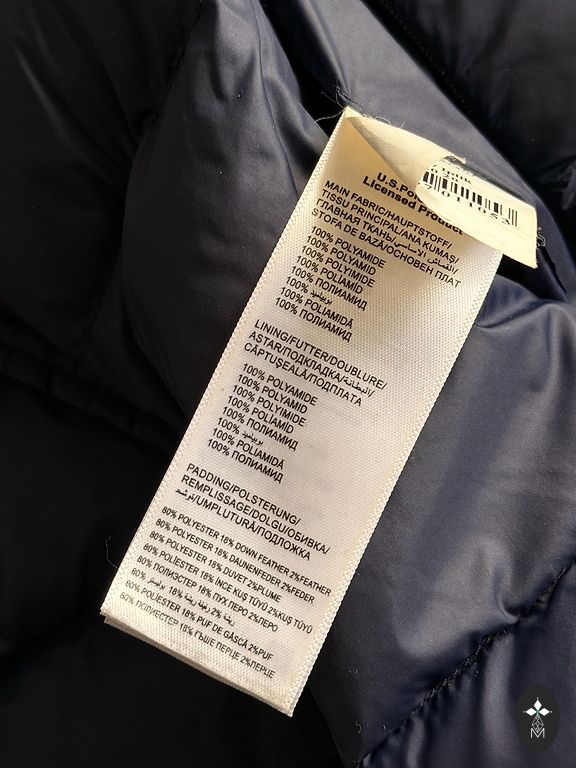 U.S.Po
Licensed Product
7011053
MAIN FABRIC/HAUPTSTOFF/
TISSU PRINCIPAL/ANA KUMAŞ/
ГЛАВНАЯ ТКАНЬ/القماش الاساسي/
STOFA DE BAZĂ/ОСНОВЕН ПЛАТ
100% POLYAMIDE
100% POLYAMID
100% POLYIMIDE
100% POLİAMİD
100% ПОЛИАМИД
100%
100% POLIAMIDĂ
100% ПОЛИАМИД
LINING/FUTTER/DOUBLURE/
ASTAR/ПОДКЛАДКА/البطانة/
CĂPTUȘEALĂ/ПОДПЛАТА
100% POLYAMIDE
100% POLYAMID
100% POLYIMIDE
100% POLİAMİD
100% ПОЛИАМИД
100%
100% POLIAMIDĂ
100% ПОЛИАМИД
PADDING/POLSTERUNG/
REMPLISSAGE/DOLGU/ОБИВКА/
/UMPLUTURĂ/ПОДЛОЖКА
80% POLYESTER 18% DOWN FEATHER 2%FEATHER
80% POLYESTER 18% DAUNENFEDER 2%FEDER
80% POLYESTER 18% DUVET 2%PLUME
80% POLİESTER 18% İNCE KUŞ TÜYÜ 2%KUŞ TÜYÜ
80% ПОЛИЭСТЕР 18% ПУХ ПЕРО 2%ПЕРО
80% بوليستر 18% 2% ريشة
80% POLIESTER 18% PUF DE GÂSCĂ 2%PUF
80% ПОЛИЕСТЕР 18% ГЪШЕ ПЕРЦЕ 2%ПЕРЦЕ
M